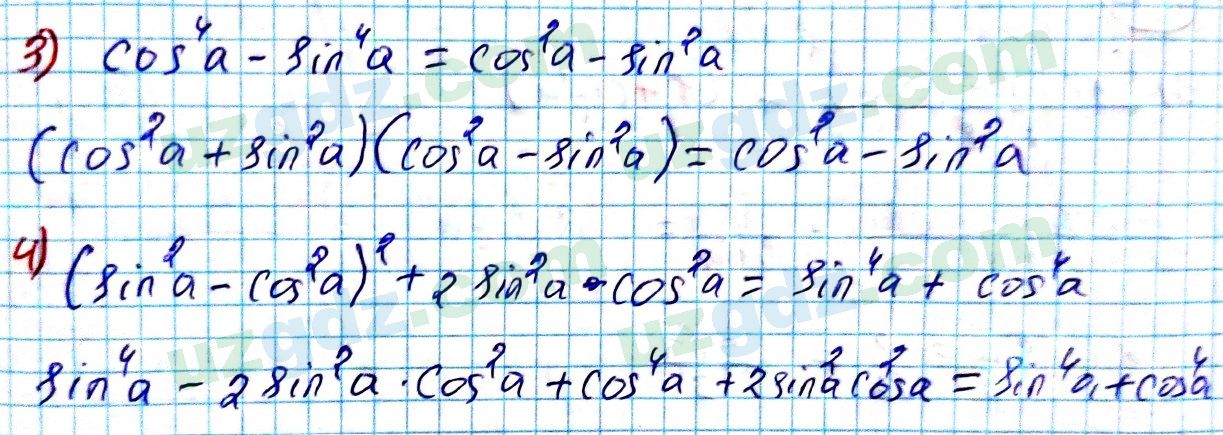 3) cos⁴a - sin⁴a = cos²a - sin²a
(cos²a + sin²a)(cos²a - sin²a) = cos²a - sin²a
4) (sin²a - cos²a)² + 2 sin²a · cos²a = sin⁴a + cos⁴a
sin⁴a - 2 sin²a · cos²a + cos⁴a + 2sin²a cos²a = sin⁴a + cos⁴a
uzgdz.com
uzgdz.com
uzgdz.com
uzgdz.com